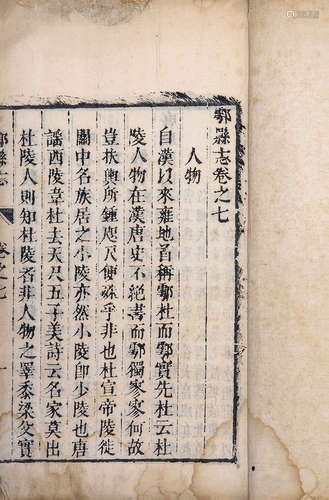 鄠縣志卷之七
人物
自漢以來雍地首稱鄠杜而鄠實先杜云杜
陵人物在漢唐史不絕書而鄠獨寥寥何故
豈扶輿所鍾咫尺便殊乎非也杜宣帝陵徙
關中名族居之少陵亦然小陵卽少陵也唐
謠西陵韋杜去天尺五子美詩云名家莫出
杜陵人則知杜陵者非人物之罩黍梁父實
鄠縣志
卷之七
一